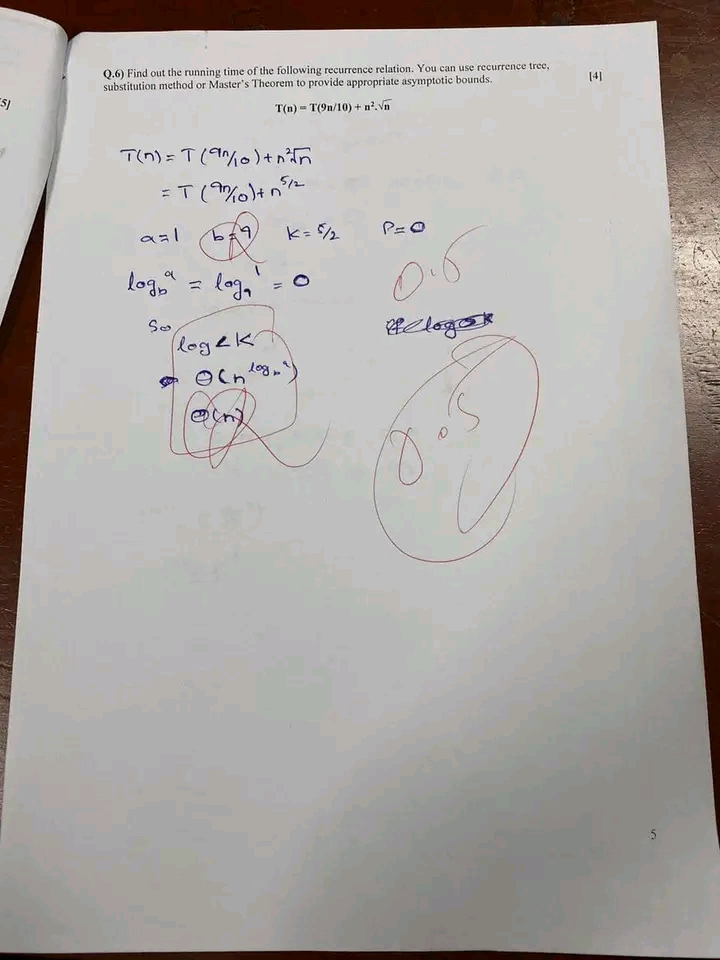 5]
Q.6) Find out the running time of the following recurrence relation. You can use recurrence tree,
substitution method or Master's Theorem to provide appropriate asymptotic bounds. [4]
T(n) = T(9n/10) + n².√n
T(n) = T(9n/10) + n²√n
= T(9n/10) + n^5/2
a=1 b=9 K=5/2 P=0
log_b^a = log_9^1 = 0
0.5
So
log < K
Θ(n^log_b^a)
Θ(n)
0.5
5